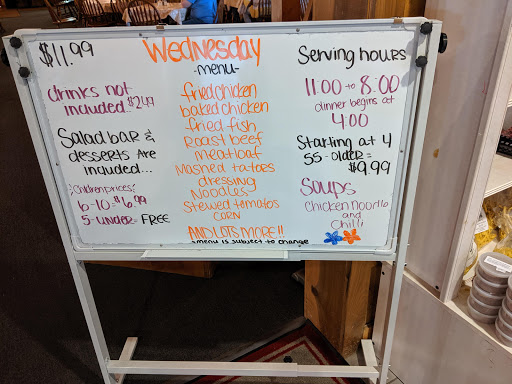 $11.99
drinks not
included $2.49
Salad bar &
desserts Are
included...
Children prices:
6-10 = $6.99
5-under = FREE
Wednesday
-menu-
fried chicken
baked chicken
fried fish
Roast beef
meatloaf
Mashed tatoes
dressing
Noodles
Stewed tomatos
corn
AND LOTS MORE!!
*menu is subject to change
Serving hours
11:00 to 8:00
dinner begins at
4:00
Starting at 4
55-older =
$9.99
Soups
Chicken noodle
and
Chili